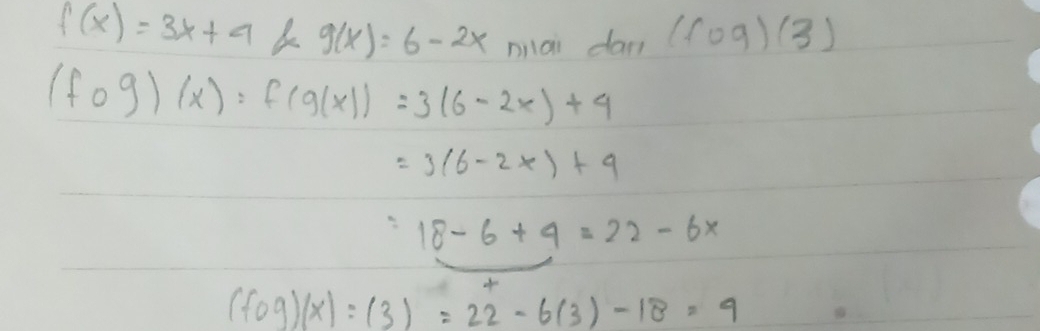 f(x) = 3x + 4 & g(x) = 6 - 2x nilai dari (fog)(3)
(fog)(x) = f(g(x)) = 3(6 - 2x) + 4
= 3(6 - 2x) + 4
= 18 - 6 + 4 = 22 - 6x
+
(fog)(x) = (3) = 22 - 6(3) - 18 = 4